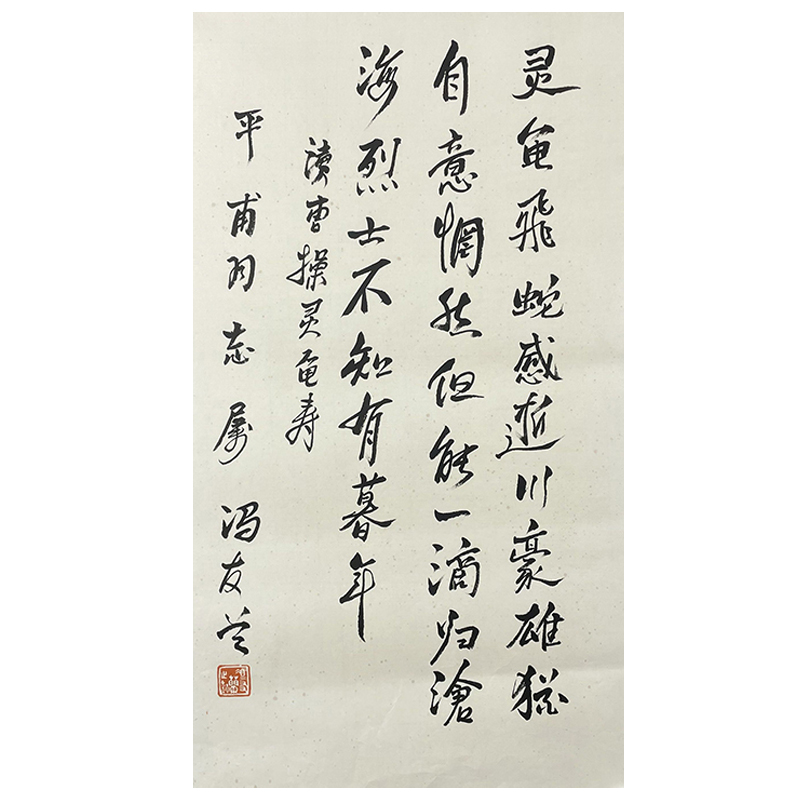 灵龟飛蛇感逝川豪雄犹
自意惘然但能一滴归滄
海烈士不知有暮年
读曹操灵龟寿
平甫同志属 冯友兰